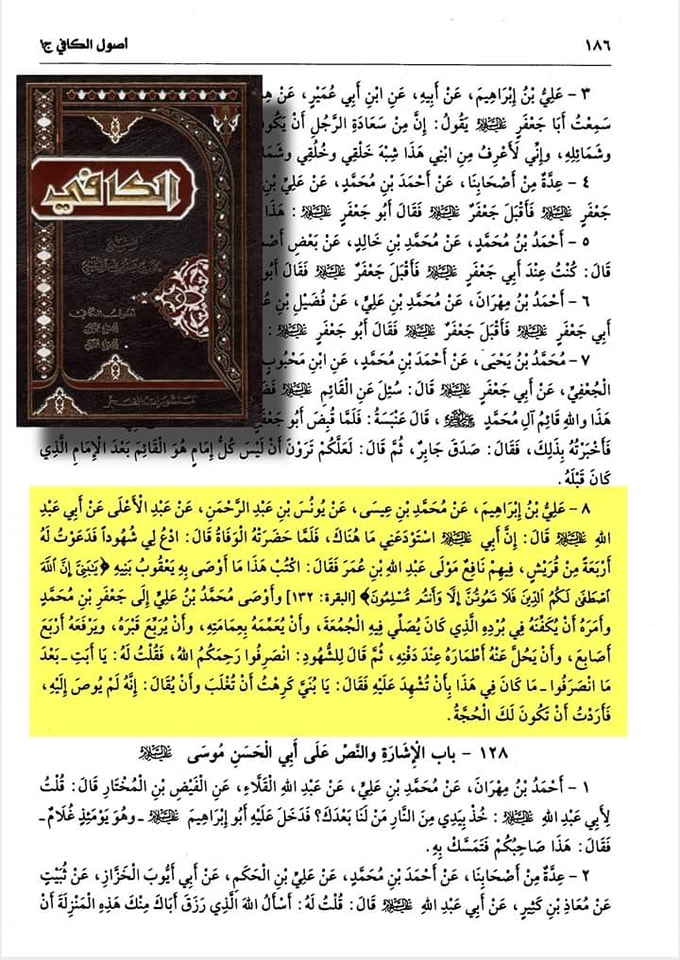 ١٨٦
أصول الكافي ج١
٣ - عَلِيُّ بْنُ إِبْرَاهِيمَ، عَنْ أَبِيهِ، عَنِ ابْنِ أَبِي عُمَيْرٍ، عَنْ
سَمِعْتُ أَبَا جَعْفَرٍ عليه السلام يَقُولُ: إِنَّ مِنْ سَعَادَةِ الرَّجُلِ أَنْ
وشَمَائِلِهِ، وإِنِّي لَأَعْرِفُ مِنِ ابْنِي هَذَا شِبْهَ خَلْقِي وخُلُقِي
٤ - عِدَّةٌ مِنْ أَصْحَابِنَا، عَنْ أَحْمَدَ بْنِ مُحَمَّدٍ، عَنْ عَلِيِّ بْنِ
جَعْفَرٍ عليه السلام فَأَقْبَلَ جَعْفَرٌ عليه السلام فَقَالَ أَبُو جَعْفَرٍ عليه السلام : هَذَا
٥ - أَحْمَدُ بْنُ مُحَمَّدٍ، عَنْ مُحَمَّدِ بْنِ خَالِدٍ، عَنْ بَعْضِ
قَالَ: كُنْتُ عِنْدَ أَبِي جَعْفَرٍ عليه السلام فَأَقْبَلَ جَعْفَرٌ عليه السلام فَقَالَ
٦ - أَحْمَدُ بْنُ مِهْرَانَ، عَنْ مُحَمَّدِ بْنِ عَلِيٍّ، عَنْ فُضَيْلِ بْنِ
أَبِي جَعْفَرٍ عليه السلام فَأَقْبَلَ جَعْفَرٌ عليه السلام فَقَالَ أَبُو جَعْفَرٍ عليه السلام :
٧ - مُحَمَّدُ بْنُ يَحْيَى، عَنْ أَحْمَدَ بْنِ مُحَمَّدٍ، عَنِ ابْنِ مَحْبُوبٍ
الْجُعْفِيِّ، عَنْ أَبِي جَعْفَرٍ عليه السلام قَالَ: سُئِلَ عَنِ الْقَائِمِ عليه السلام
هَذَا واللهِ قَائِمُ آلِ مُحَمَّدٍ ﷺ ، قَالَ عَنْبَسَةُ: فَلَمَّا قُبِضَ أَبُو جَعْفَرٍ
فَأَخْبَرْتُهُ بِذَلِكَ، فَقَالَ: صَدَقَ جَابِرٌ، ثُمَّ قَالَ: لَعَلَّكُمْ تَرَوْنَ أَنْ لَيْسَ كُلُّ إِمَامٍ هُوَ الْقَائِمَ بَعْدَ الْإِمَامِ الَّذِي
كَانَ قَبْلَهُ.
الكافي
٨ - عَلِيُّ بْنُ إِبْرَاهِيمَ، عَنْ مُحَمَّدِ بْنِ عِيسَى، عَنْ يُونُسَ بْنِ عَبْدِ الرَّحْمَنِ، عَنْ عَبْدِ الْأَعْلَى عَنْ أَبِي عَبْدِ
اللهِ عليه السلام قَالَ: إِنَّ أَبِي عليه السلام اسْتَوْدَعَنِي مَا هُنَاكَ، فَلَمَّا حَضَرَتْهُ الْوَفَاةُ قَالَ: ادْعُ لِي شُهُوداً فَدَعَوْتُ لَهُ
أَرْبَعَةً مِنْ قُرَيْشٍ، فِيهِمْ نَافِعٌ مَوْلَى عَبْدِ اللهِ بْنِ عُمَرَ فَقَالَ: اكْتُبْ هَذَا مَا أَوْصَى بِهِ يَعْقُوبُ بَنِيهِ ﴿يَٰبَنِيَّ إِنَّ ٱللَّهَ
ٱصْطَفَىٰ لَكُمُ ٱلدِّينَ فَلَا تَمُوتُنَّ إِلَّا وَأَنتُم مُّسْلِمُونَ﴾ [البقرة: ١٣٢] وأَوْصَى مُحَمَّدُ بْنُ عَلِيٍّ إِلَى جَعْفَرِ بْنِ مُحَمَّدٍ
وأَمَرَهُ أَنْ يُكَفِّنَهُ فِي بُرْدِهِ الَّذِي كَانَ يُصَلِّي فِيهِ الْجُمُعَةَ، وأَنْ يُعَمِّمَهُ بِعِمَامَتِهِ، وأَنْ يُرَبِّعَ قَبْرَهُ، ويَرْفَعَهُ أَرْبَعَ
أَصَابِعَ، وأَنْ يَحُلَّ عَنْهُ أَطْمَارَهُ عِنْدَ دَفْنِهِ، ثُمَّ قَالَ لِلشُّهُودِ: انْصَرِفُوا رَحِمَكُمُ اللهُ، فَقُلْتُ لَهُ: يَا أَبَتِ ـ بَعْدَ
مَا انْصَرَفُوا ـ مَا كَانَ فِي هَذَا بِأَنْ تُشْهِدَ عَلَيْهِ فَقَالَ: يَا بُنَيَّ كَرِهْتُ أَنْ تُغْلَبَ وأَنْ يُقَالَ: إِنَّهُ لَمْ يُوصَ إِلَيْهِ،
فَأَرَدْتُ أَنْ تَكُونَ لَكَ الْحُجَّةُ.
١٢٨ - باب الْإِشَارَةِ والنَّصِّ عَلَى أَبِي الْحَسَنِ مُوسَى عليه السلام
١ - أَحْمَدُ بْنُ مِهْرَانَ، عَنْ مُحَمَّدِ بْنِ عَلِيٍّ، عَنْ عَبْدِ اللهِ الْقَلَّاءِ، عَنِ الْفَيْضِ بْنِ الْمُخْتَارِ قَالَ: قُلْتُ
لِأَبِي عَبْدِ اللهِ عليه السلام : خُذْ بِيَدِي مِنَ النَّارِ مَنْ لَنَا بَعْدَكَ؟ فَدَخَلَ عَلَيْهِ أَبُو إِبْرَاهِيمَ عليه السلام ـ وهُوَ يَوْمَئِذٍ غُلَامٌ ـ
فَقَالَ: هَذَا صَاحِبُكُمْ فَتَمَسَّكْ بِهِ.
٢ - عِدَّةٌ مِنْ أَصْحَابِنَا، عَنْ أَحْمَدَ بْنِ مُحَمَّدٍ، عَنْ عَلِيِّ بْنِ الْحَكَمِ، عَنْ أَبِي أَيُّوبَ الْخَزَّازِ، عَنْ ثُبَيْتٍ
عَنْ مُعَاذِ بْنِ كَثِيرٍ، عَنْ أَبِي عَبْدِ اللهِ عليه السلام قَالَ: قُلْتُ لَهُ: أَسْأَلُ اللهَ الَّذِي رَزَقَ أَبَاكَ مِنْكَ هَذِهِ الْمَنْزِلَةَ أَنْ